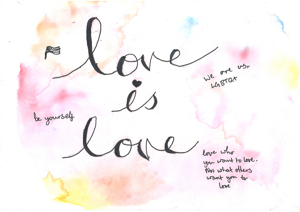 love
we are us.
LGBTQ+
is
be yourself
love
love who
you want to love.
Not what others
want you to
love